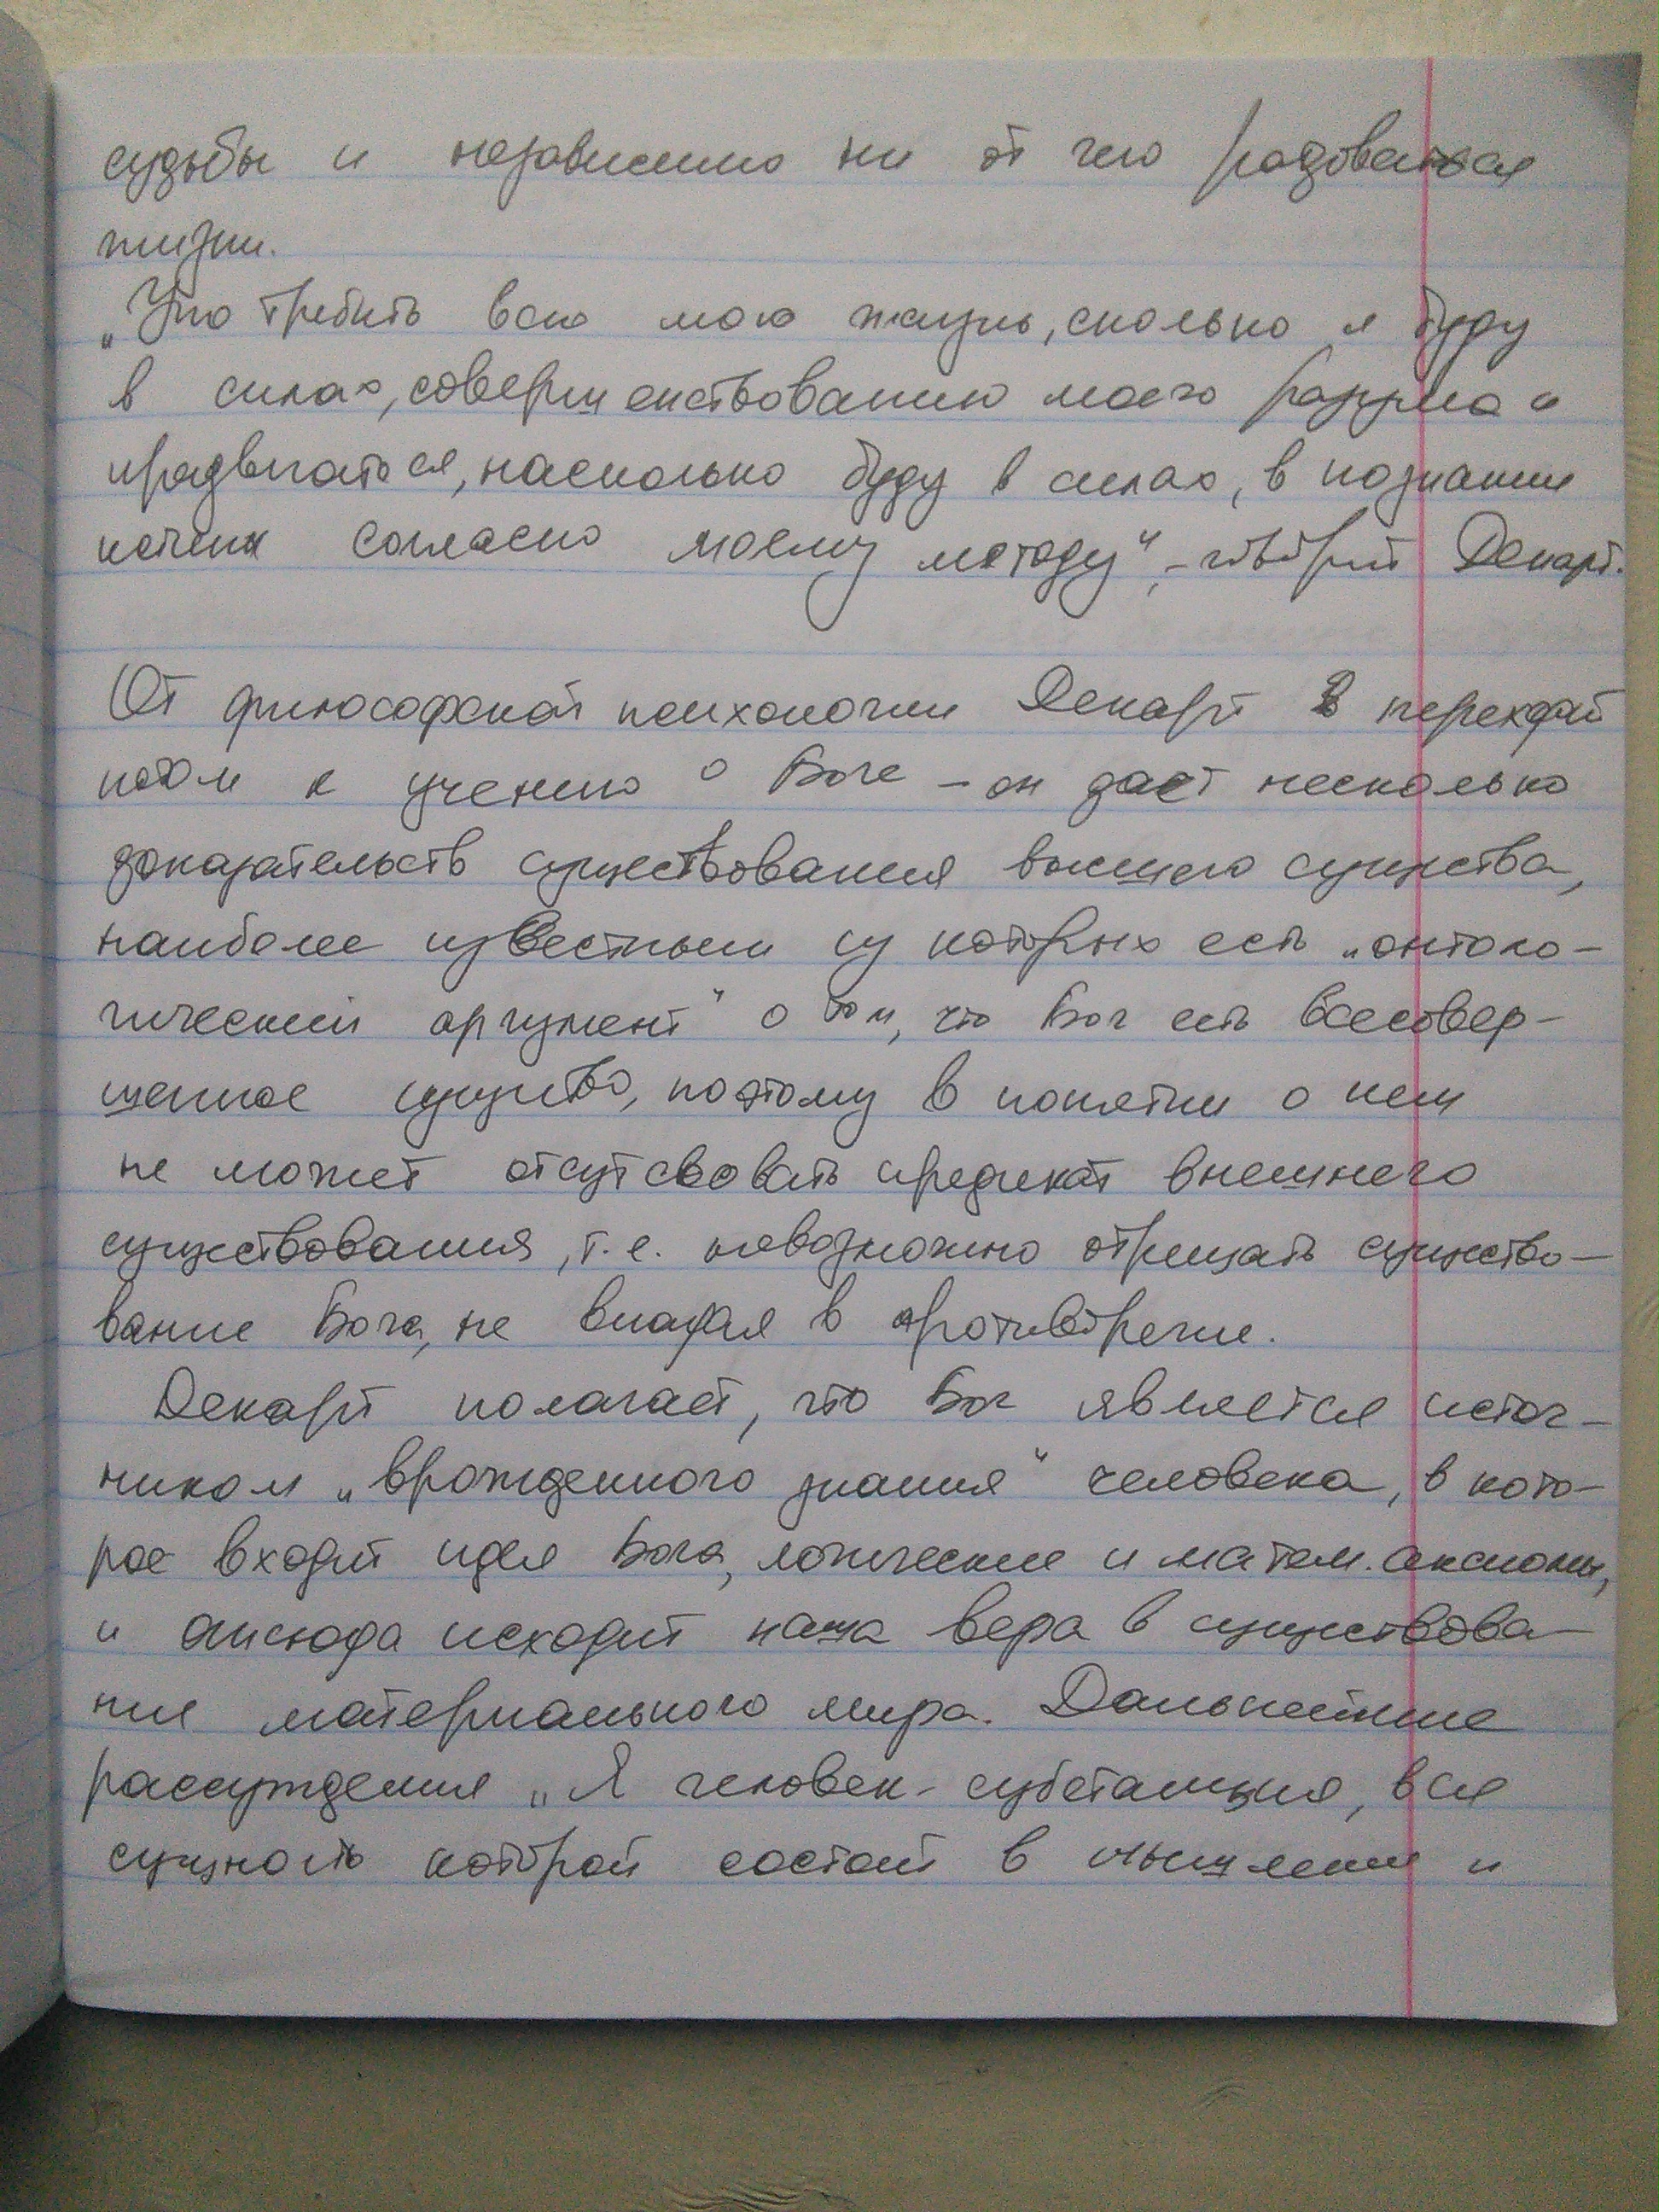 судьбы и независимо ни от чего радоваться
жизни.
„Употребить всю мою жизнь, сколько я буду
в силах, совершенствованию моего разума и
продвигаться, насколько буду в силах, в познании
истины согласно моему методу", - говорит Декарт.
От философской психологии Декарт переходит
потом к учению о Боге – он дает несколько
доказательств существования высшего существа,
наиболее известным из которых есть „онтоло-
гический аргумент" о том, что Бог есть всесовер-
шенное существо, поэтому в понятии о нем
не может отсутсвовать предикат внешнего
существования, т.е. невозможно отрицать существо-
вание Бога, не впадая в противоречие.
Декарт полагает, что Бог является источ-
ником „врожденного знания" человека, в кото-
рое входит идея Бога, логические и матем. аксиомы,
и отсюда исходит наша вера в существова-
ние материального мира. Дальнейшие
рассуждения „Я человек - субстанция, вся
сущность которой состоит в мышлении и